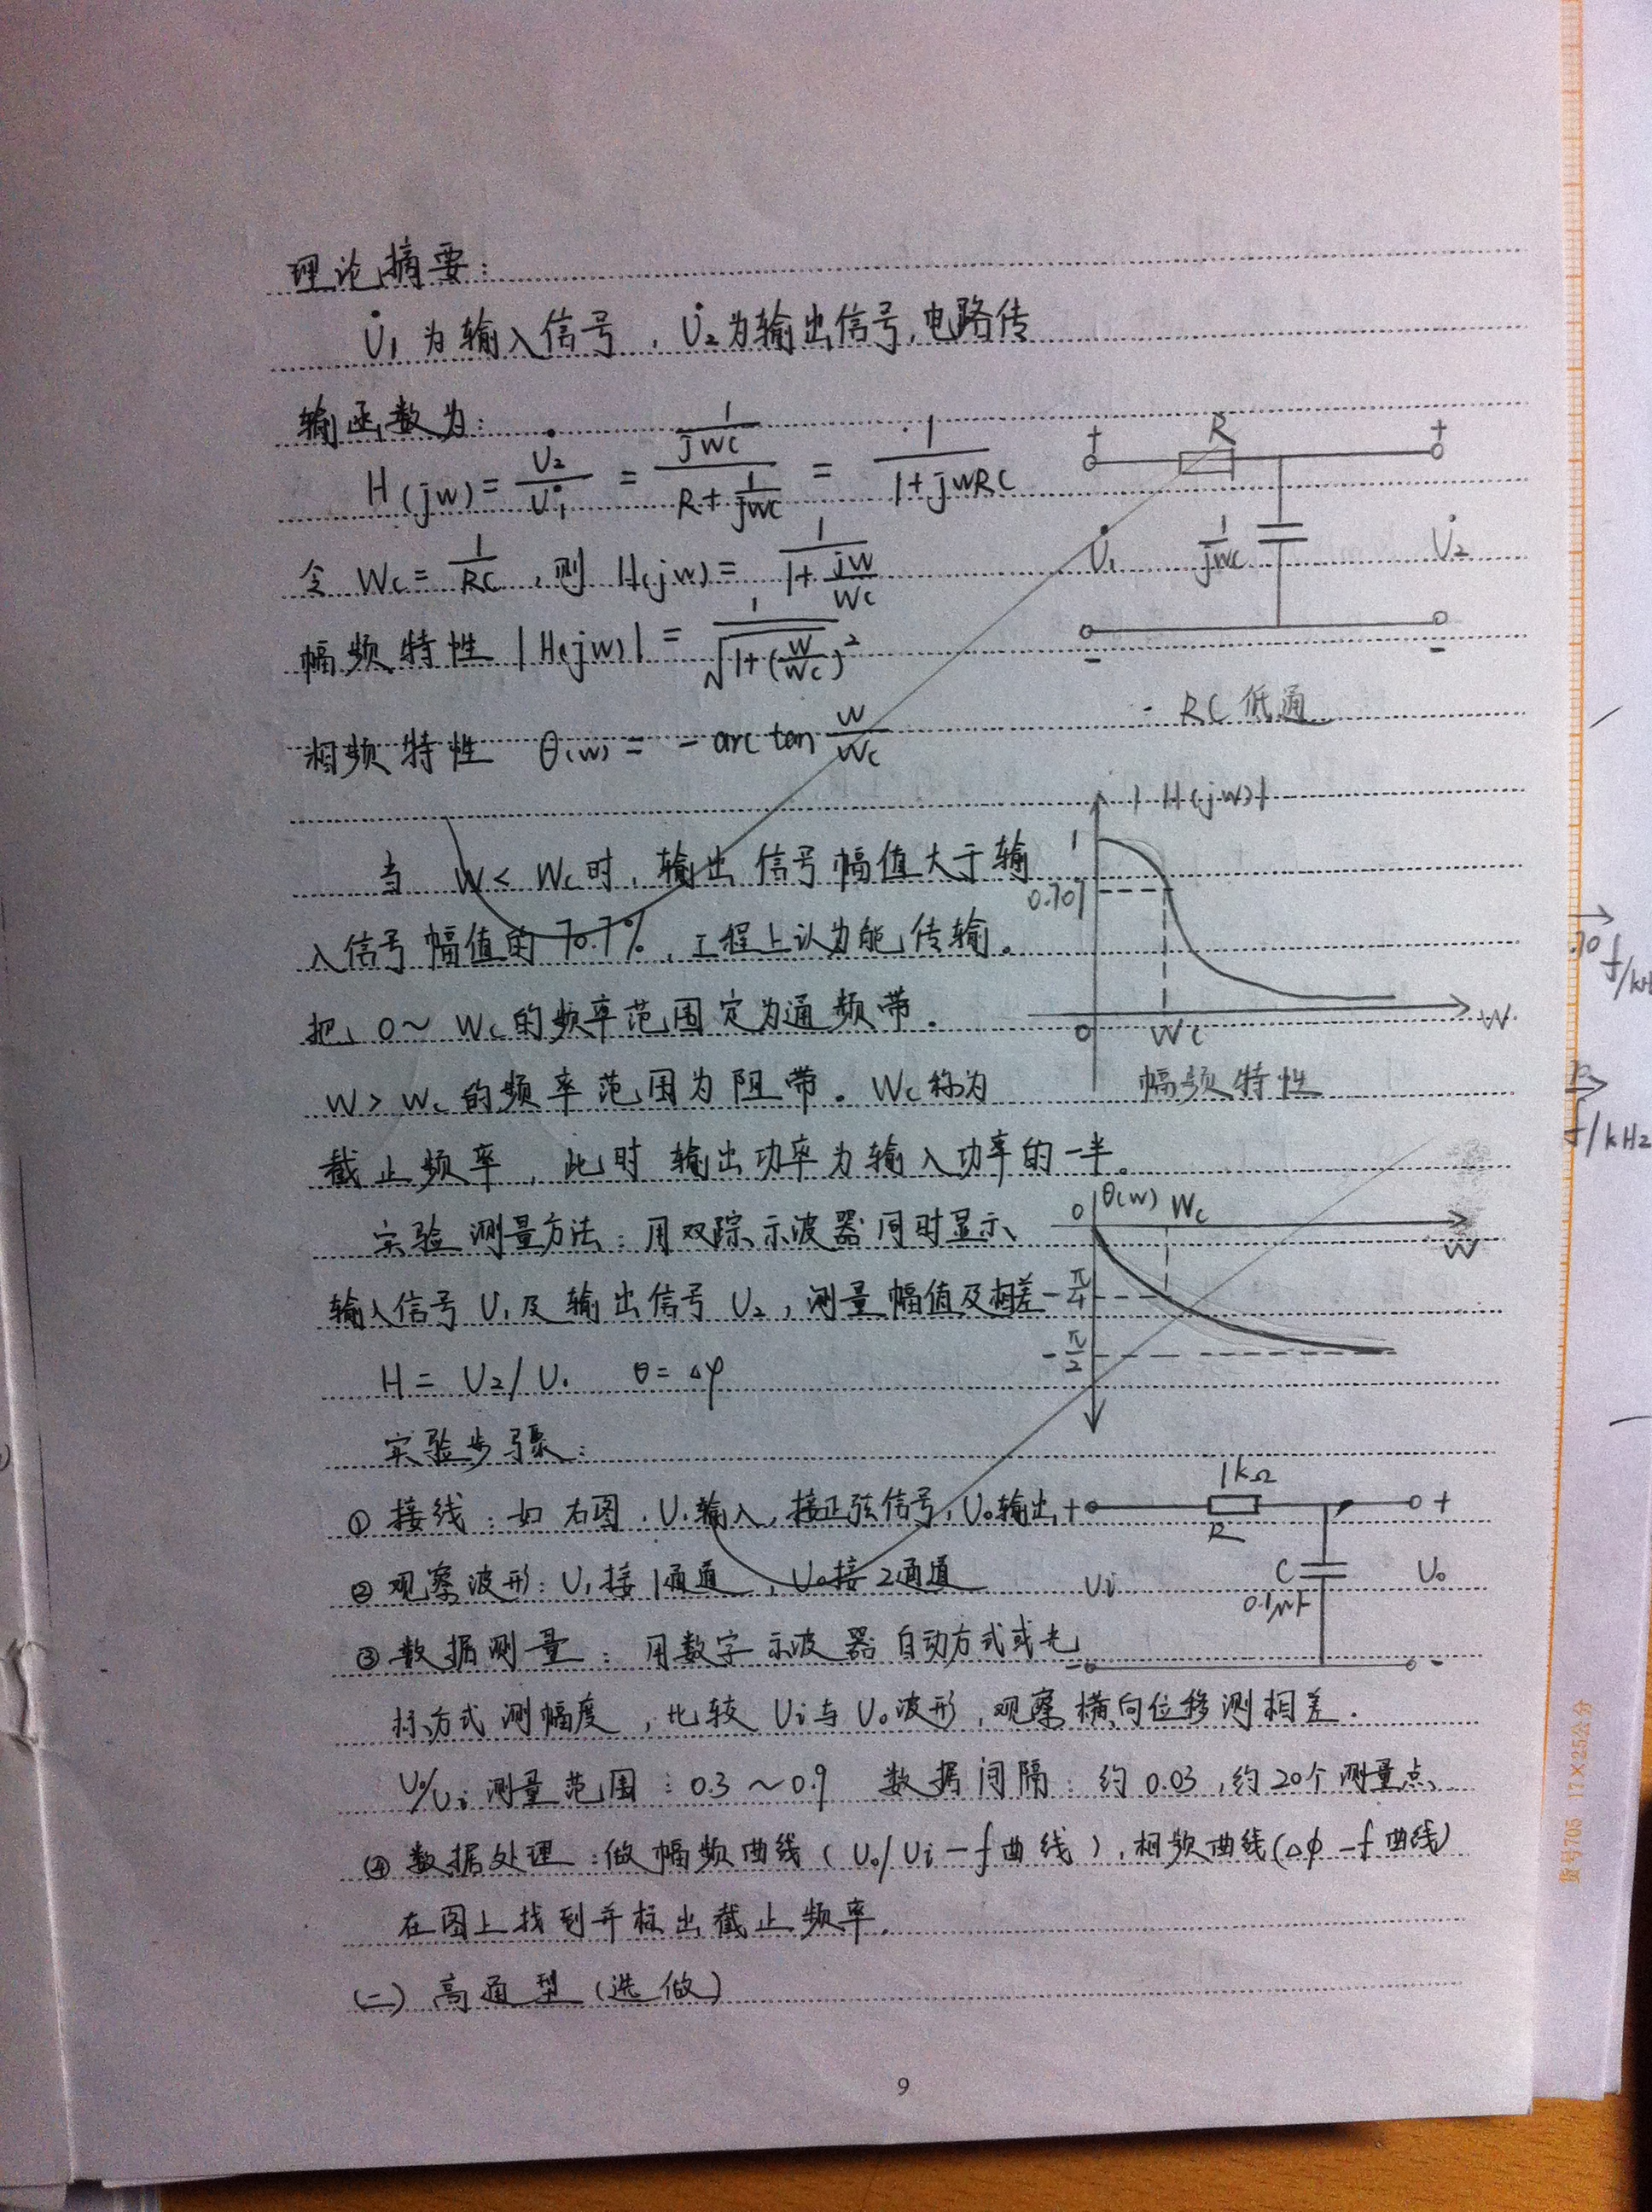 理论摘要:
U̇₁为输入信号，U̇₂为输出信号,电路传
输函数为:
H(jw)= U̇₂/U̇₁ = (1/jwc)/(R+1/jwc) = 1/(1+jwRC)
+ R +
U̇₁ 1/jwc U̇₂
- -
令 Wc= 1/RC ,则 H(jw)= 1/(1+jw/wc)
幅频特性 |H(jw)| = 1/√(1+(w/wc)²)
- RC低通
相频特性 θ(w) = -arc tan w/wc
|H(jw)|
1
0.707
0 Wc W
幅频特性
当 W< Wc时,输出信号幅值大于输
入信号幅值的70.7%,工程上认为能传输。
把 0~Wc的频率范围定为通频带.
W> wc的频率范围为阻带。Wc称为
截止频率,此时输出功率为输入功率的一半。
0 θ(w) Wc
W
-π/4
-π/2
实验测量方法:用双踪示波器同时显示
输入信号U₁及输出信号U₂,测量幅值及相差
H = U₂/U₁ θ=△φ
实验步骤:
1kΩ
+ R +
Ui C Uo
0.1μF
- -
①接线:如右图.Ui输入,接正弦信号,Uo输出
②观察波形:Ui接1通道,Uo接2通道
③数据测量:用数字示波器自动方式或光
标方式测幅度,比较Ui与Uo波形,观察横向位移测相差.
Uo/Ui测量范围:0.3~0.9 数据间隔:约0.03,约20个测量点
④数据处理:做幅频曲线(Uo/Ui-f曲线),相频曲线(△φ-f曲线)
在图上找到并标出截止频率.
(二)高通型(选做)
9
10
f/kH
f/kHz
货号705 17×25公分